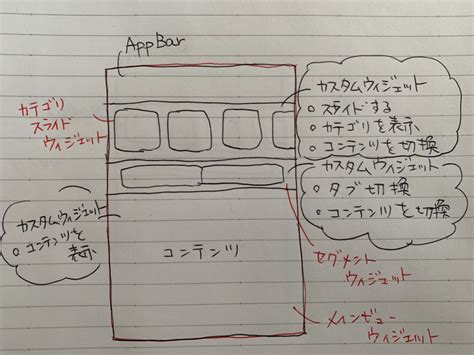 AppBar
カスタムウィジェット
○ スライドする
○ カテゴリを表示
○ コンテンツを切換
カテゴリ
スライド
ウィジェット
カスタムウィジェット
○ タブ切換
○ コンテンツを切換
カスタムウィジェット
○ コンテンツを
表示
コンテンツ
セグメント
ウィジェット
メインビュー
ウィジェット